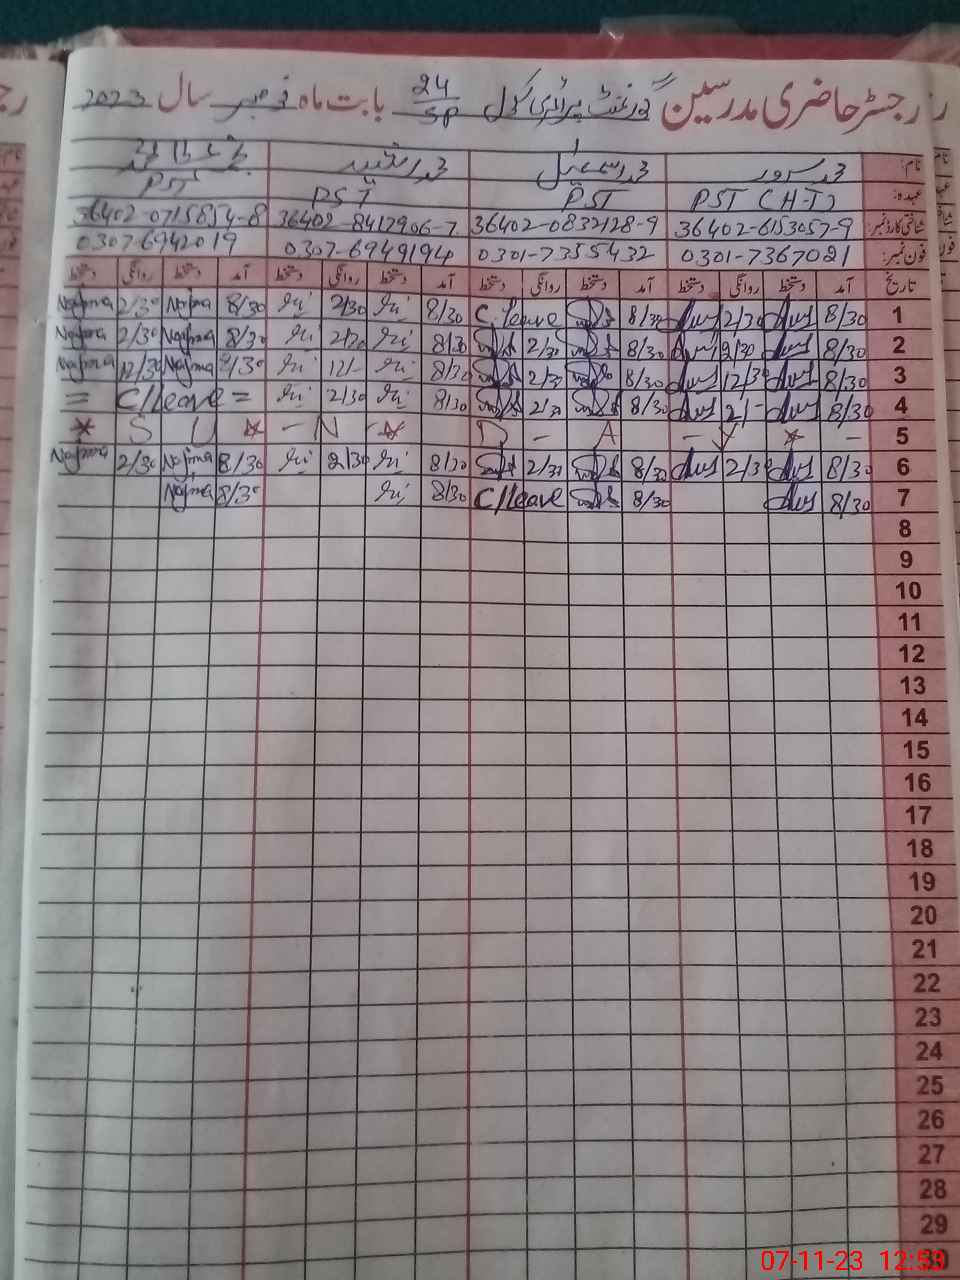 رجسٹر حاضری مدرسین گورنمنٹ پرائمری سکول 24/SP بابت ماہ نومبر سال 2023
نام: محمد سرور محمد اسمعیل محمد رشید
عہدہ: PST (H-T) PST PST PST
شناختی کارڈ نمبر: 36402-6153057-9 36402-0832128-9 36402-8417906-7 36402-0715854-8
فون نمبر: 0301-7367021 0301-7355432 0307-6949194 0307-6942019
تاریخ آمد دستخط روانگی دستخط آمد دستخط روانگی دستخط آمد دستخط روانگی دستخط آمد دستخط روانگی دستخط
1 8/30 2/30 8/30 C.leave 8/30 2/30 8/30 Najma 2/30 Najma
2 8/30 2/30 8/30 2/30 8/30 2/30 8/30 Najma 2/30 Najma
3 8/30 12/30 8/30 2/30 8/30 12/- 8/30 Najma 12/30 Najma
4 8/30 2/- 8/30 2/30 8/30 2/30 = C/leave =
5 * S U * - N - * D - A - Y * -
6 8/30 2/30 8/30 2/30 8/30 2/30 8/30 Najma 2/30 Najma
7 8/30 8/30 C/leave 8/30 8/30 Najma
8
9
10
11
12
13
14
15
16
17
18
19
20
21
22
23
24
25
26
27
28
29
30
07-11-23 12:53